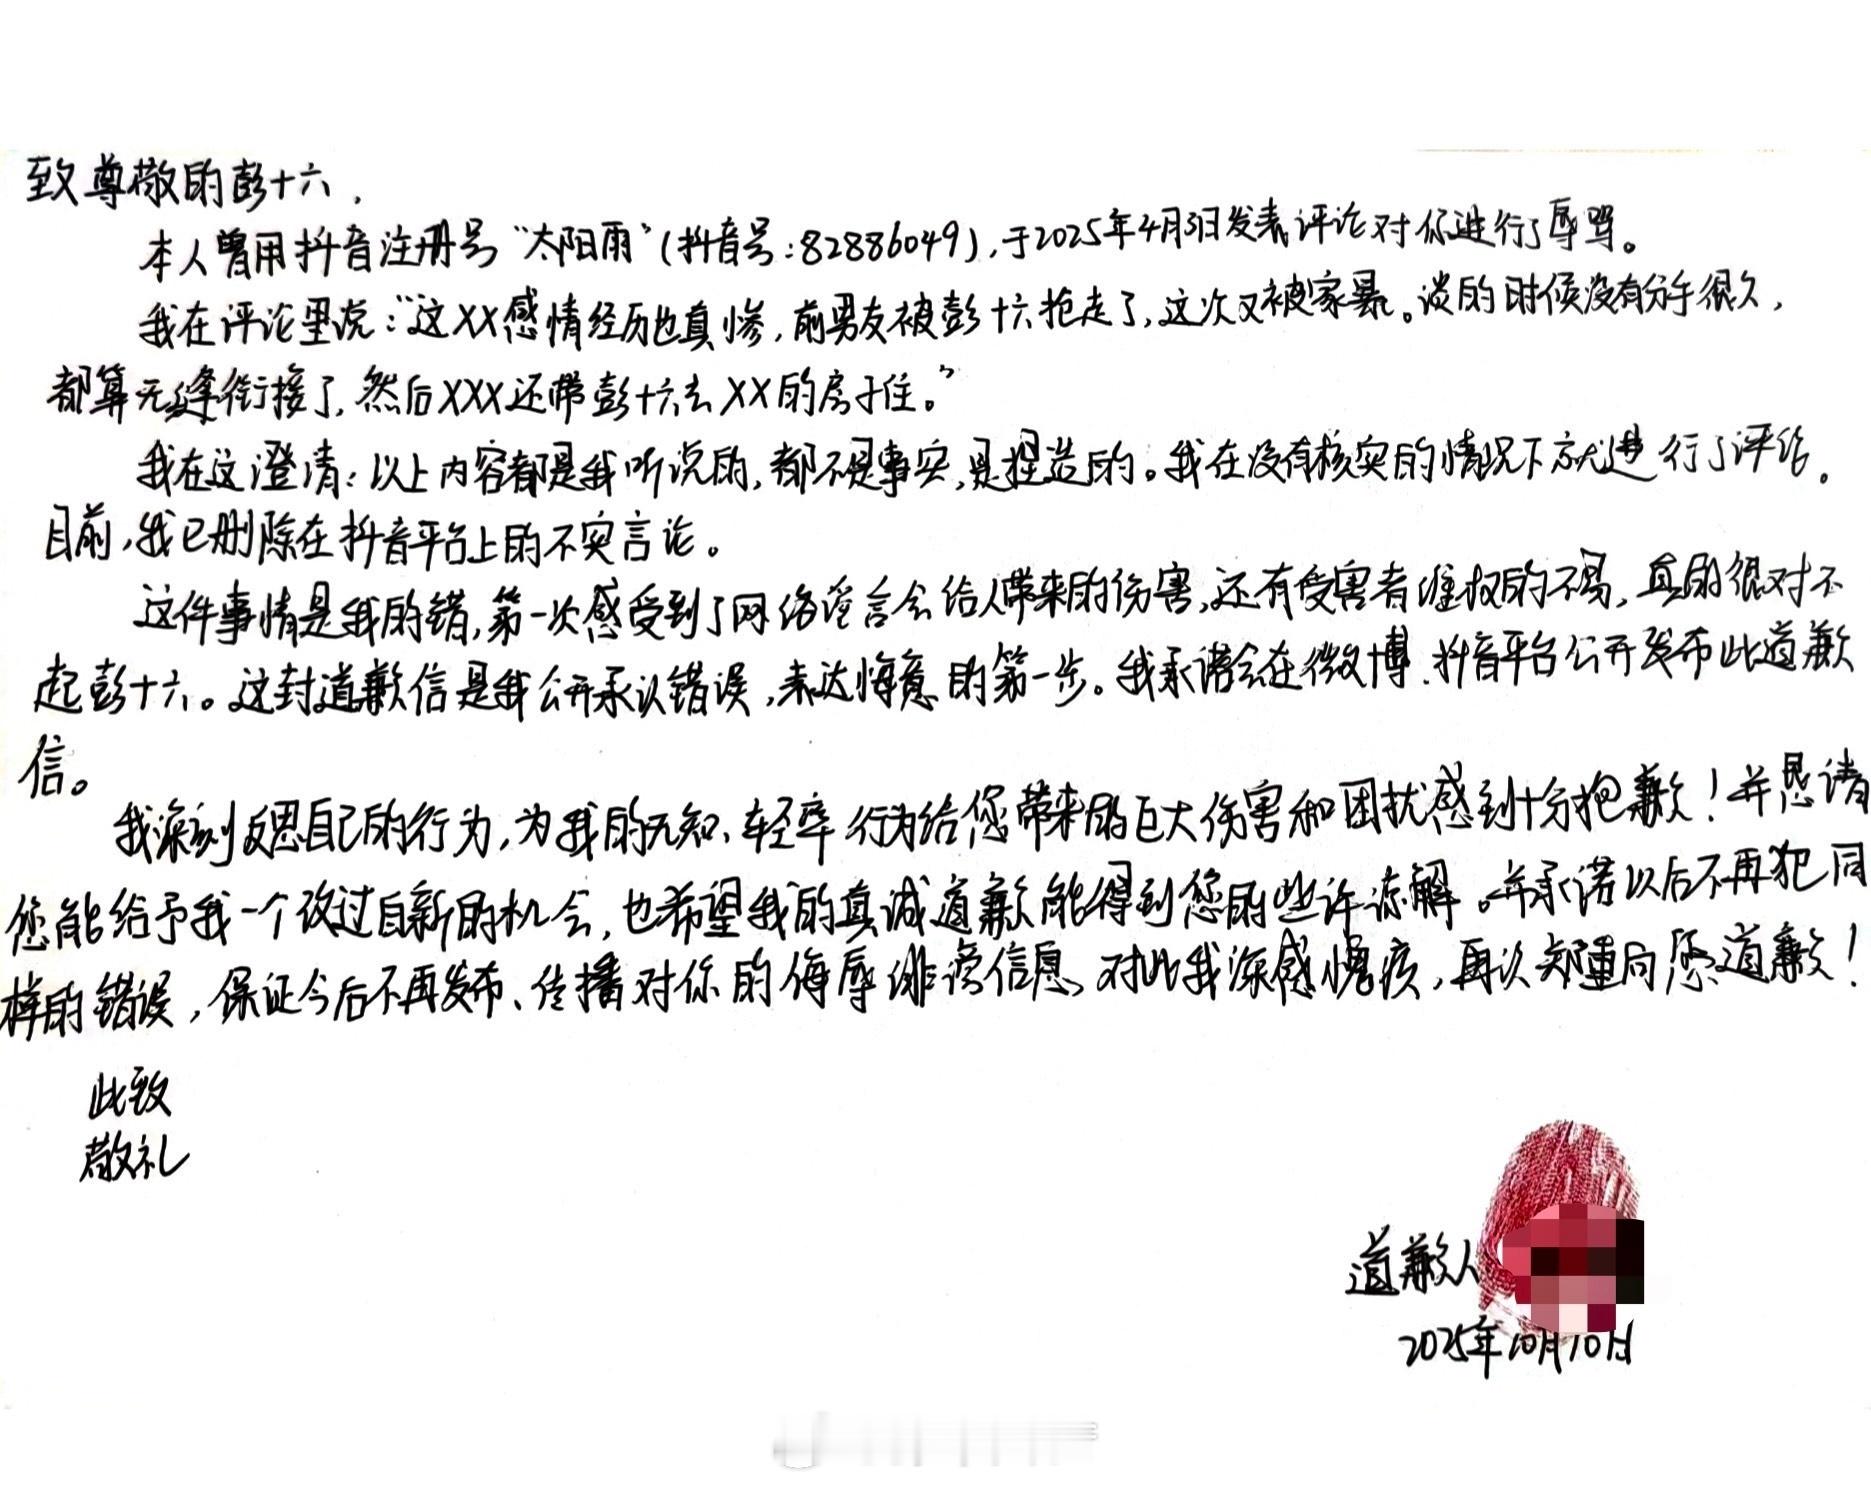 致尊敬的彭十六，
本人曾用抖音注册号“太阳雨”(抖音号:82886049),于2025年4月3日发表评论对你进行了辱骂。
我在评论里说:“这XX感情经历也真惨,前男友被彭十六抢走了,这次又被家暴。谈的时候没有分手很久,
都算无缝衔接了,然后XXX还带彭十六去XX的房子住。”
我在这澄清:以上内容都是我听说的,都不是事实,是捏造的。我在没有核实的情况下就进行了评论。
目前,我已删除在抖音平台上的不实言论。
这件事情是我的错,第一次感受到了网络谣言会给人带来的伤害,还有受害者维权的不易,真的很对不
起彭十六。这封道歉信是我公开承认错误,表达悔意的第一步。我承诺会在微博、抖音平台公开发布此道歉
信。
我深刻反思自己的行为,为我的无知、轻率行为给您带来的巨大伤害和困扰感到十分抱歉!并恳请
您能给予我一个改过自新的机会,也希望我的真诚道歉能得到您的些许谅解。并承诺以后不再犯同
样的错误,保证今后不再发布、传播对你的侮辱诽谤信息,对此我深感愧疚,再次郑重向您道歉!
此致
敬礼
道歉人
2025年10月10日